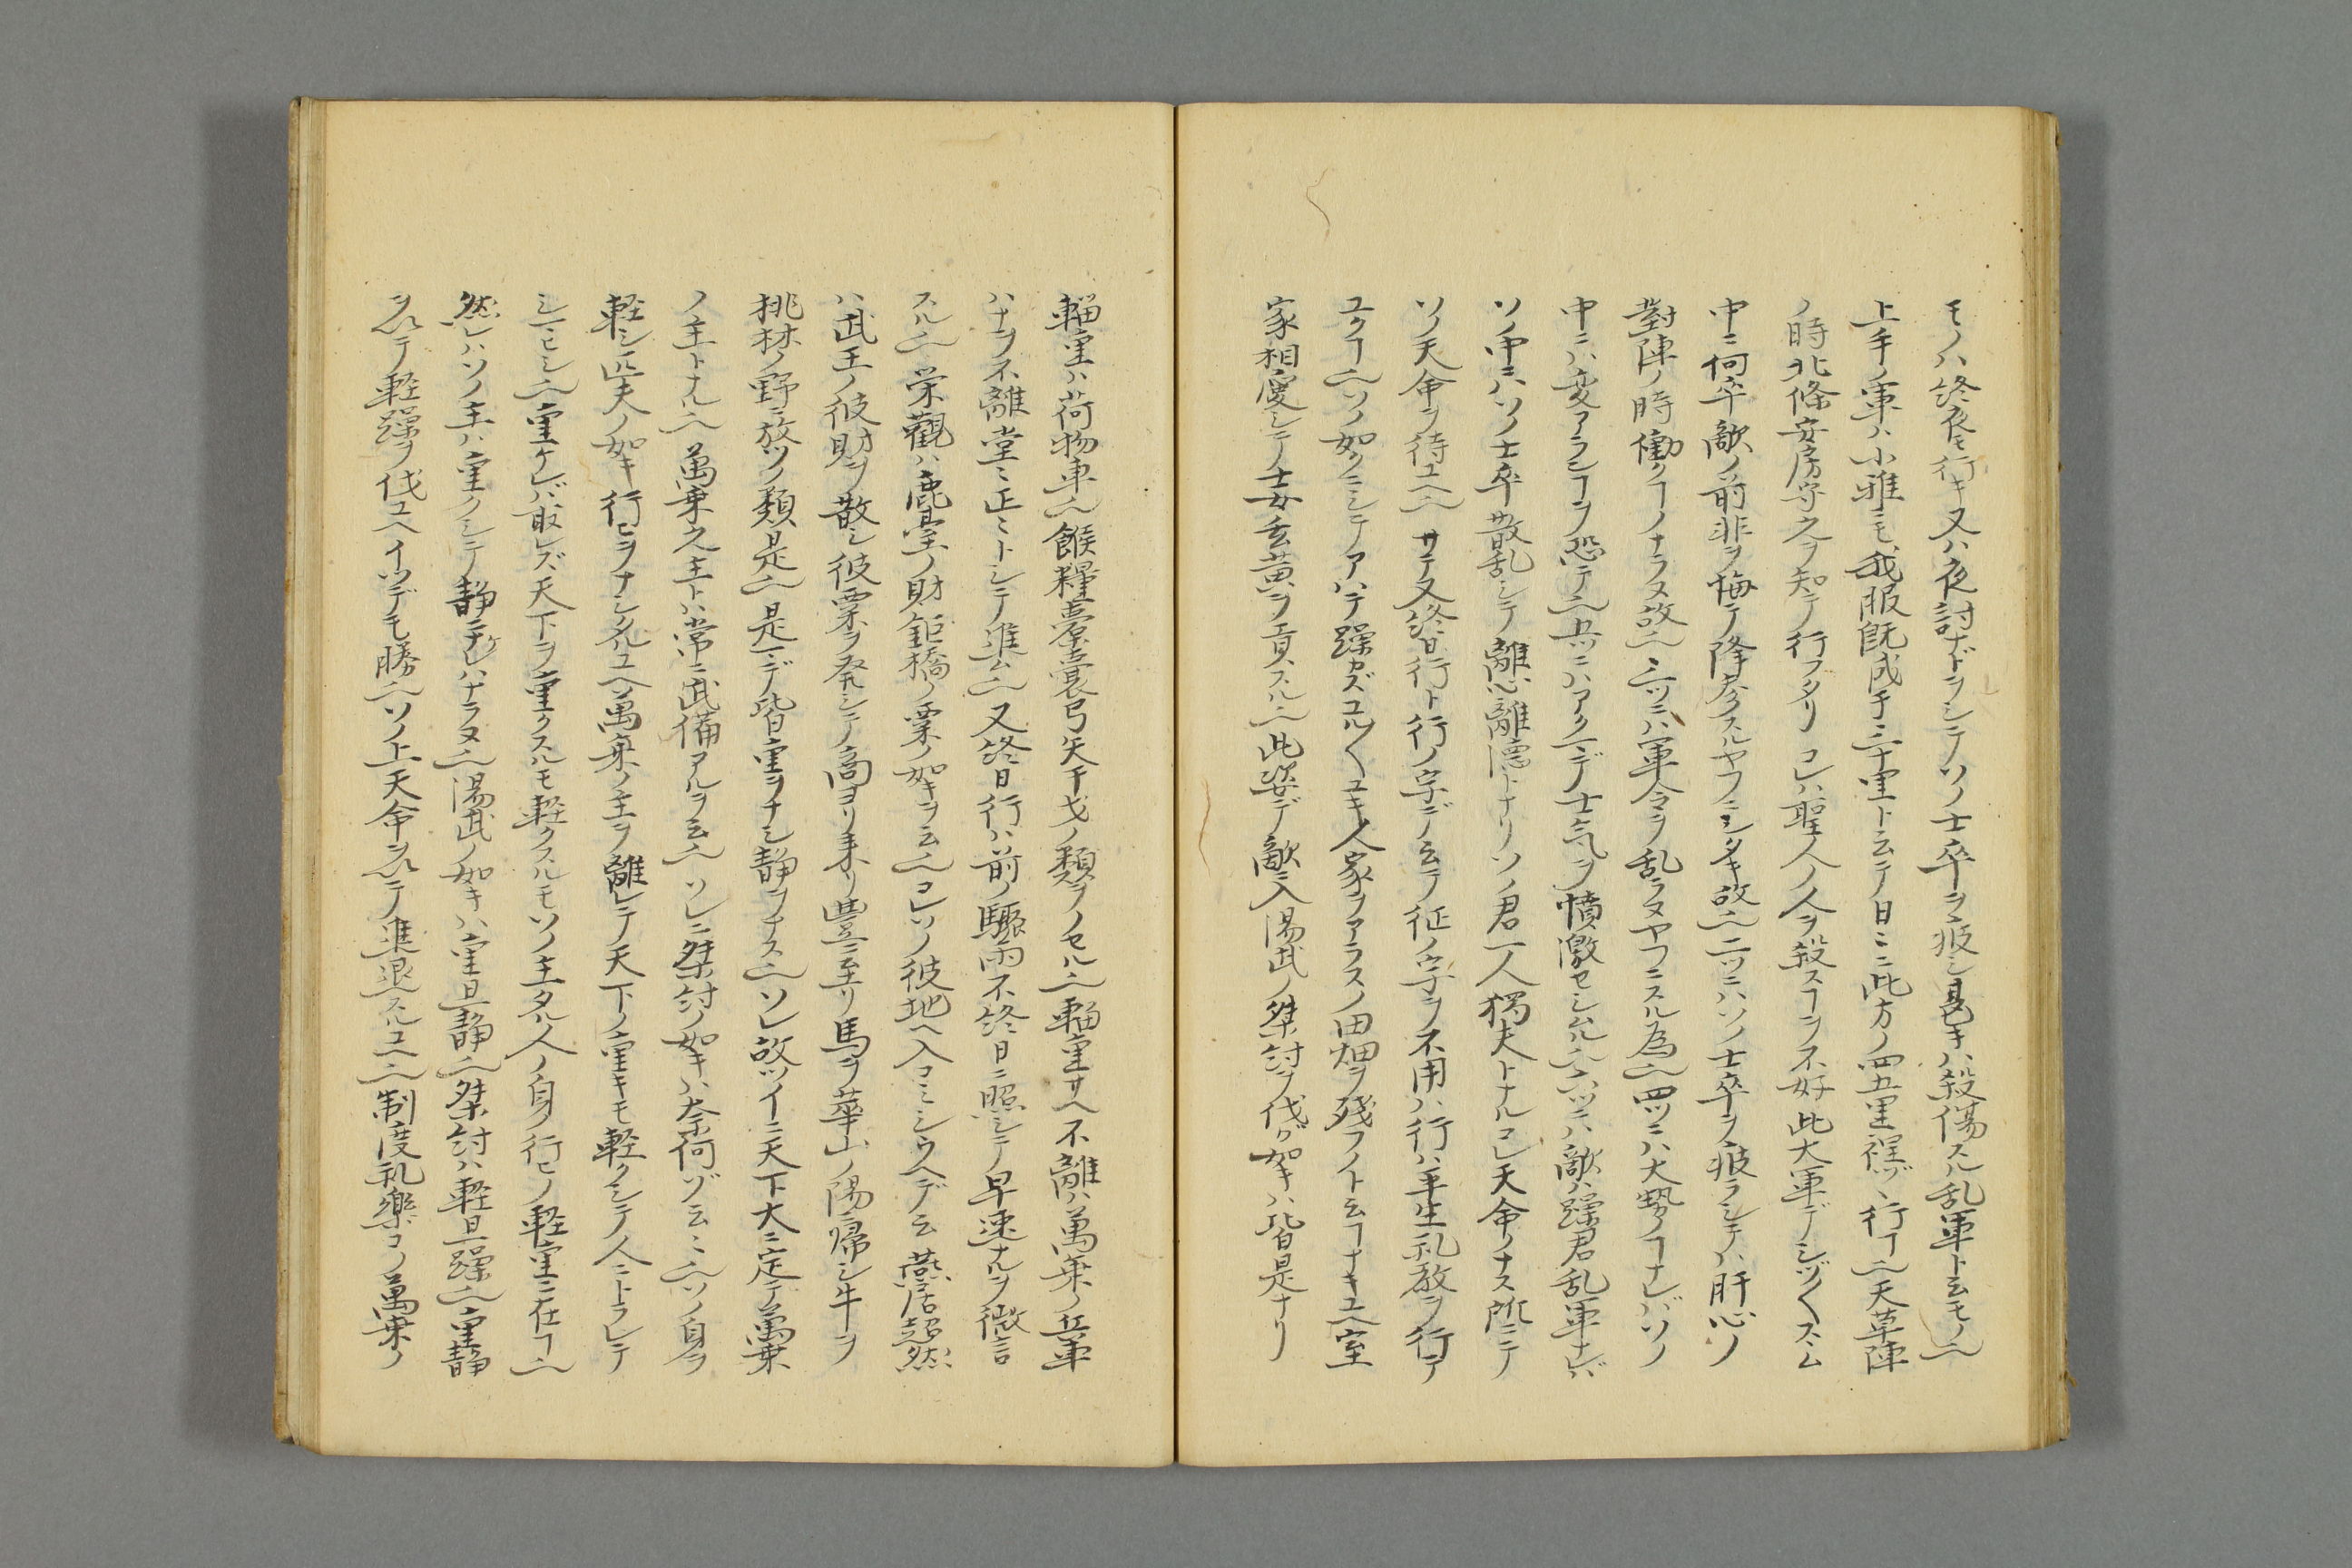 モノハ終夜モ行キ又ハ夜討ナドヲシテソノ士卒ヲ疲シ甚キハ殺傷スル乱軍ト云モノ也
上手ノ軍ハ小雅ニモ我服既成于三十里ト云テ日ニ此方ノ四五里程ヅヽ行ヿ也天草陣
ノ時北條安房守之ヲ知テ行フタリコレハ聖人ノ人ヲ殺スヿヲ不好此大軍デシヅ〱スヽム
中ニ何卒敵ノ前非ヲ悔テ降参スルヤフニシタキ故也二ツニハソノ士卒ヲ疲ラシテハ肝心ノ
對陣ノ時働クヿノナラヌ故也三ツニハ軍令ヲ乱ラヌヤフニスル為也四ツニハ大勢ノヿナレバソノ
中ニハ変アランヿヲ恐テ也五ツニハアクマデ士気ヲ憤激セシムル也六ツニハ敵ハ躁君乱軍ナレバ
ソノ中ニハソノ士卒散乱シテ離心離德トナリソノ君一人獨夫トナルコレ天命ノナス所ニテ
ソノ天命ヲ待ユヘ也サテ又終日行ト行ノ字デ云テ征ノ字ヲ不用ハ行ハ平生礼教ヲ行テ
ユクヿ也ソノ如クニシテアハテ躁カズユル〱ユキ人家ヲアラスノ田畑ヲ残フノト云ヿナキユヘ室
家相慶シテ士女玄黄ヲ貢スル也此姿デ敵ニ入湯武ノ桀紂ヲ伐ガ如キハ皆是ナリ
輜重ハ荷物車也餱糧橐囊弓矢干戈ノ類ヲノセル也輜重サヘ不離ハ萬乘ノ兵車
ハナヲ不離堂ミ正ミトシテ進ム也又終日行ハ前ノ驟雨不終日ニ照シテ早速ナルヲ微言
スル也栄觀ハ鹿臺ノ財鉅橋ノ粟ノ如キヲ云也コレソノ彼地ヘ入コミシウヘデ云燕居超然
ハ武王ノ彼財ヲ散シ彼粟ヲ発シテ商ヨリ来リ豊ニ至リ馬ヲ華山ノ陽帰シ牛ヲ
桃林ノ野ニ放ツノ類是也是マデ皆重ヲナシ静ヲナス也ソレ故ツイニ天下大ニ定テ萬乗
ノ主トナル也萬乗之主トハ常ニ武備アルヲ云也ソレニ桀紂ノ如キハ奈何ゾ云ミ也ソノ身ヲ
軽シ匹夫ノ如キ行ヒヲナシタルユヘ萬乘ノ主ヲ離レテ天下ノ重キモ軽クシテ人ニトラレテ
シマヒシ也重ケレバ取レズ天下ヲ重クスルモ軽クスルモソノ主タル人ノ身ノ行ヒノ軽重ニ在ヿ也
然レハソノ主ハ重クシテ静ニナケレハナラヌ也湯武ノ如キハ重且静也桀紂ハ軽且躁也重静
ヲ以テ軽躁ヲ伐ユヘイツデモ勝也ソノ上天命ヲ以テ進退スルユヘ也制度礼樂コノ萬乗ノ